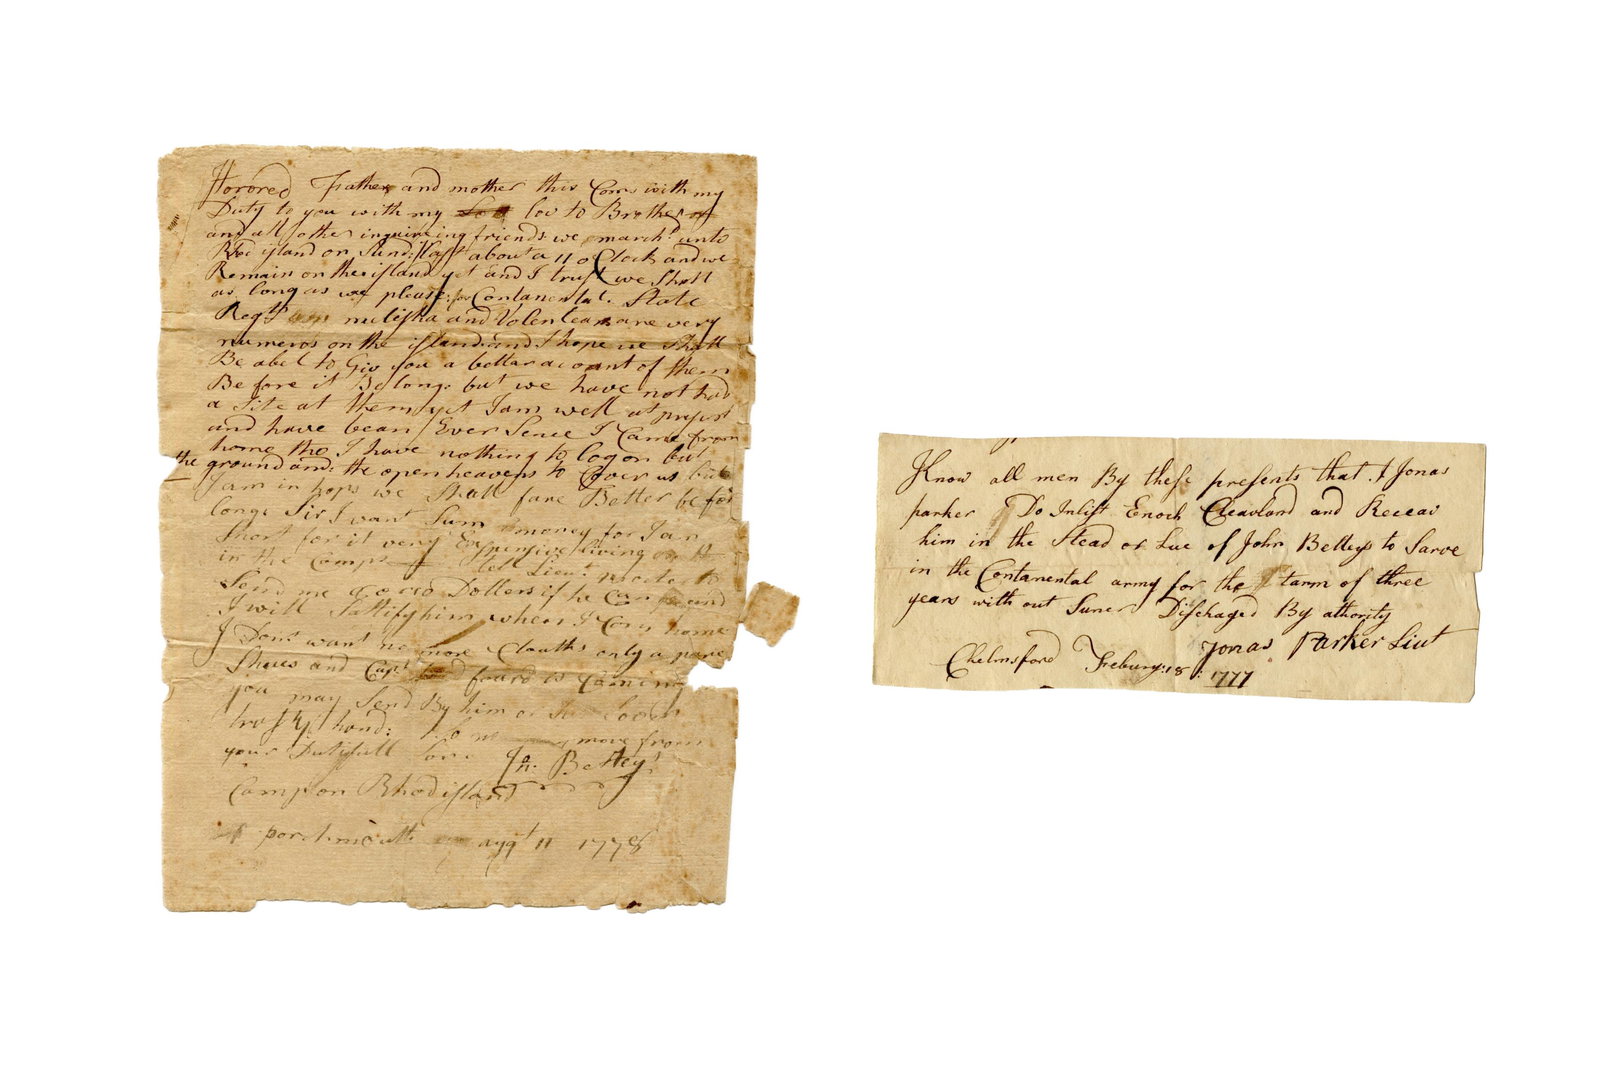 Honored Father and mother this Coms with my
Duty to you with my lov to Brother
and all other inquireing friends we march.d unto
Rod island on Sund: last about a 11 o Clock and we
Remain on the island yet and I trust we Shall
as long as we please: for Contanental. State
Regts militsha and Volenteers are very
numeros on the island: and I hope we Shall
Be abel to Giv you a bettar acount of them
Before it Be long: but we have not had
a Site at them yet I am well at present
and have bean Ever Sence I Came from
home tho I have nothing to log on but
the ground and: the open heavens to Cover us but
I am in hops we Shall fare Better be for
long: Sir I want Sum money for I am
Short for it very Expensive living on it
in the Camps tell Lieut.
Send me Dollers if he Can and
I will Sattisfy him when I Com home
I Dont want no more Cloaths only a pare
Shues and Capt foard is Coming
you may Send By him or
trusty hand: So no more from
your Dutyfull Son: Jn. Bettys
Camp on Rhod island
portsmouth augt 11 1778
Know all men By these presents that I Jonas
parker Do Inlist Enoch Cleavland and Receav
him in the Stead or Lue of John Betteys to Sarve
in the Contanental army for the tarm of three
years with out Suner Dischaged By athority
Chelmsford Febury: 18: 1777
Jonas Parker Liut